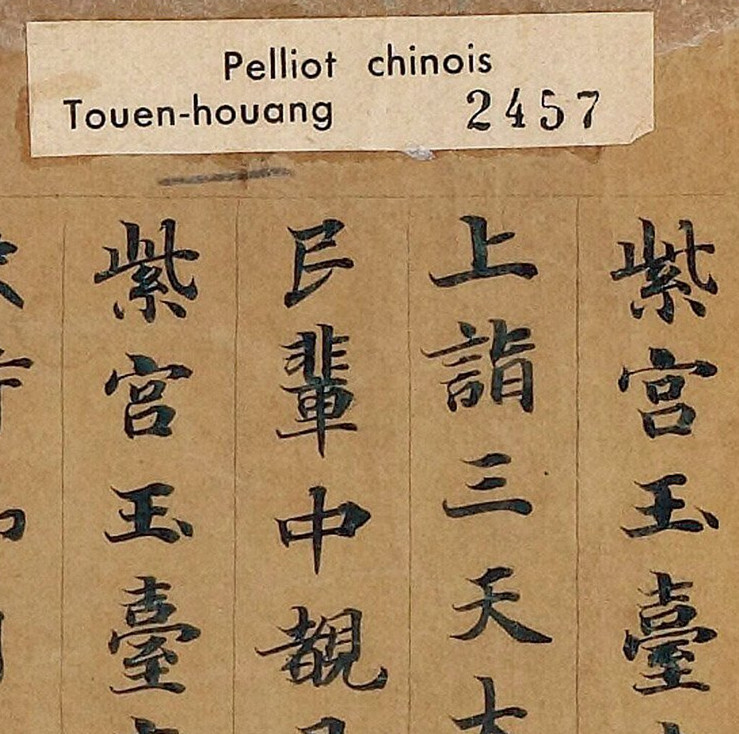 Pelliot chinois
Touen-houang 2457
紫宮玉臺
上詣三天
皀輩中覩
紫宮玉臺